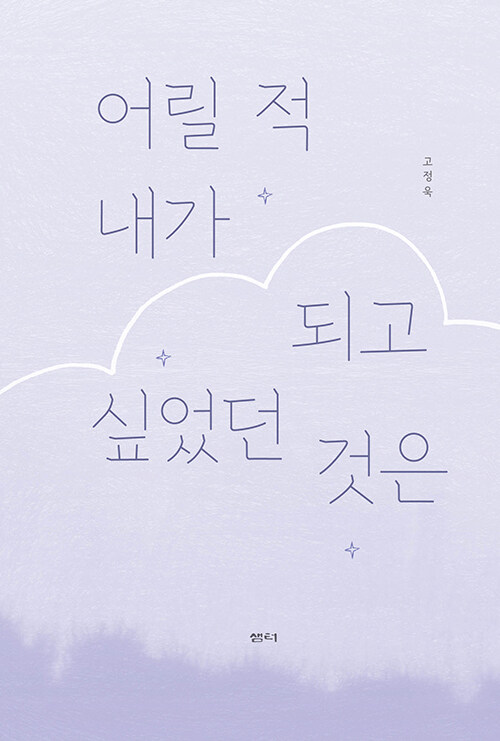 어릴 적
내가
되고
싶었던
것은
고정욱
샘터